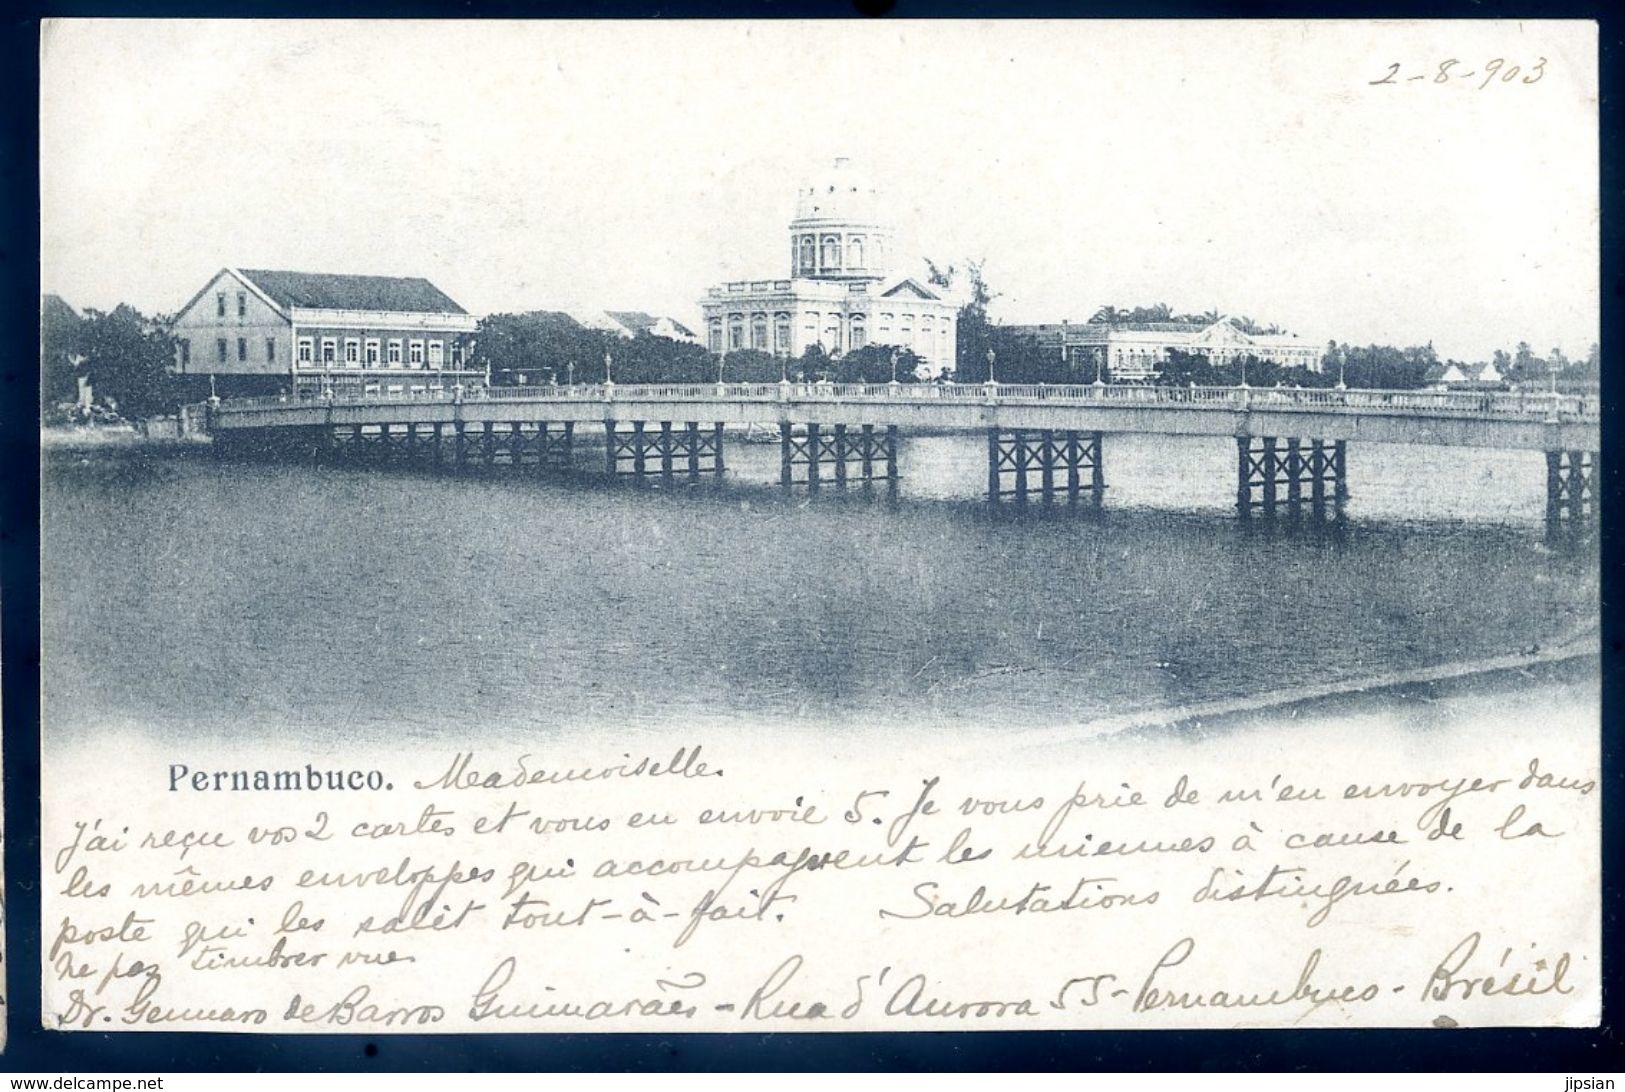 2-8-903
Pernambuco. Mademoiselle.
J'ai reçu vos 2 cartes et vous en envoie 5. Je vous prie de m'en envoyer dans
les mêmes enveloppes qui accompagnent les miennes à cause de la
poste qui les salit tout-à-fait. Salutations distinguées.
ne pas timbrer vue
Dr. Gennaro de Barros Guimarães - Rua d'Aurora 55 - Pernambuco - Brésil
www.delcampe.net
jipsian